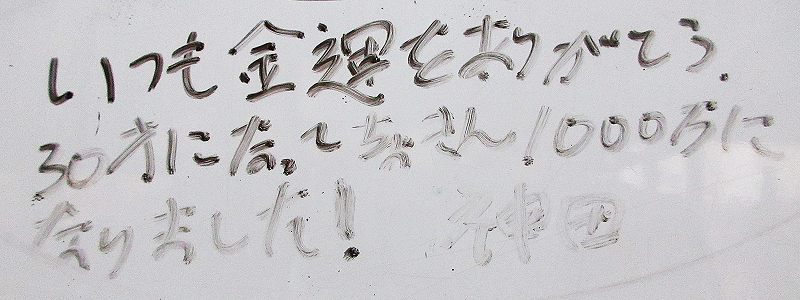 いつも金運をありがとう.
30才になって ちょきん1000万に
なりました! 神田